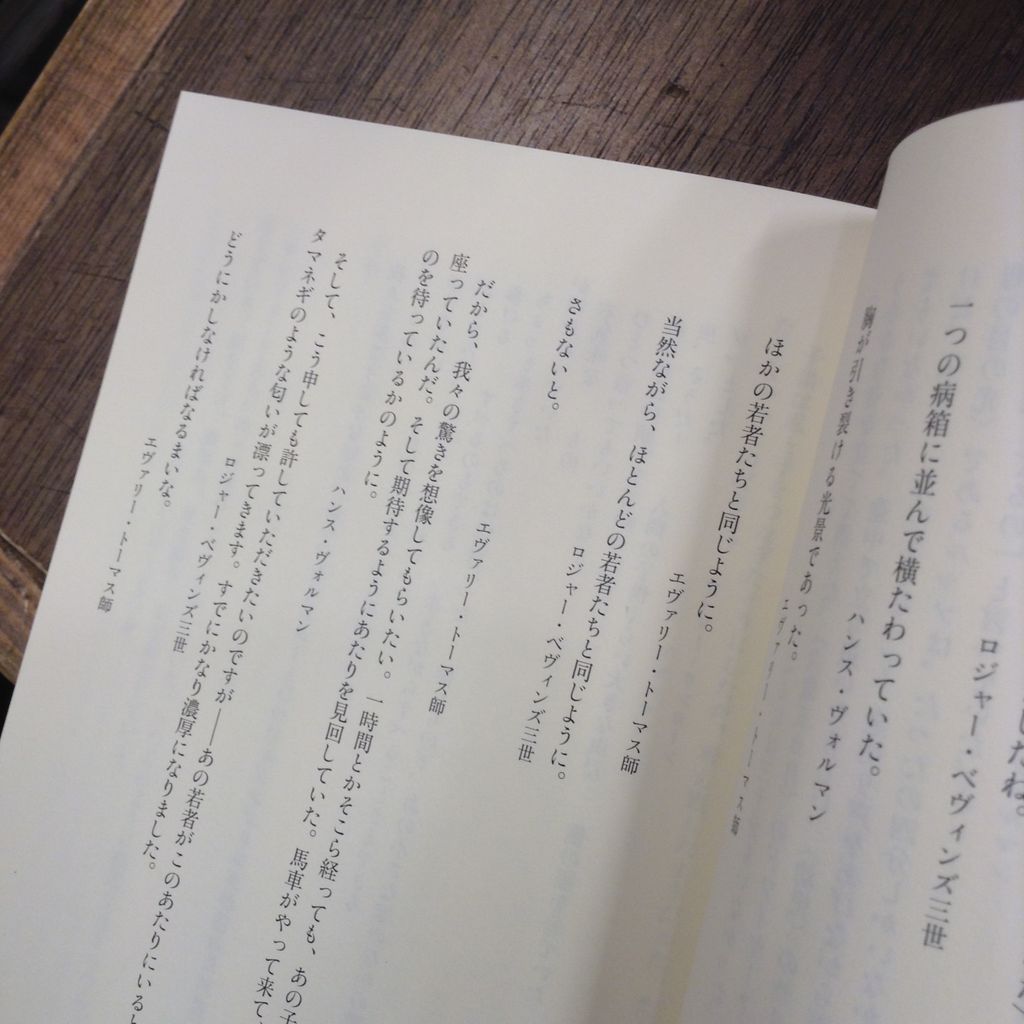 したね。
ロジャー・ベヴィンズ三世
一つの病箱に並んで横たわっていた。
ハンス・ヴォルマン
胸が引き裂ける光景であった。
エヴァリー・トーマス師
ほかの若者たちと同じように。
エヴァリー・トーマス師
当然ながら、ほとんどの若者たちと同じように。
ロジャー・ベヴィンズ三世
さもないと。
エヴァリー・トーマス師
だから、我々の驚きを想像してもらいたい。一時間とかそこら経っても、あの子
座っていたんだ。そして期待するようにあたりを見回していた。馬車がやって来て、
のを待っているかのように。
ハンス・ヴォルマン
そして、こう申しても許していただきたいのですが――あの若者がこのあたりにいると
タマネギのような匂いが漂ってきます。すでにかなり濃厚になりました。
ロジャー・ベヴィンズ三世
どうにかしなければなるまいな。
エヴァリー・トーマス師